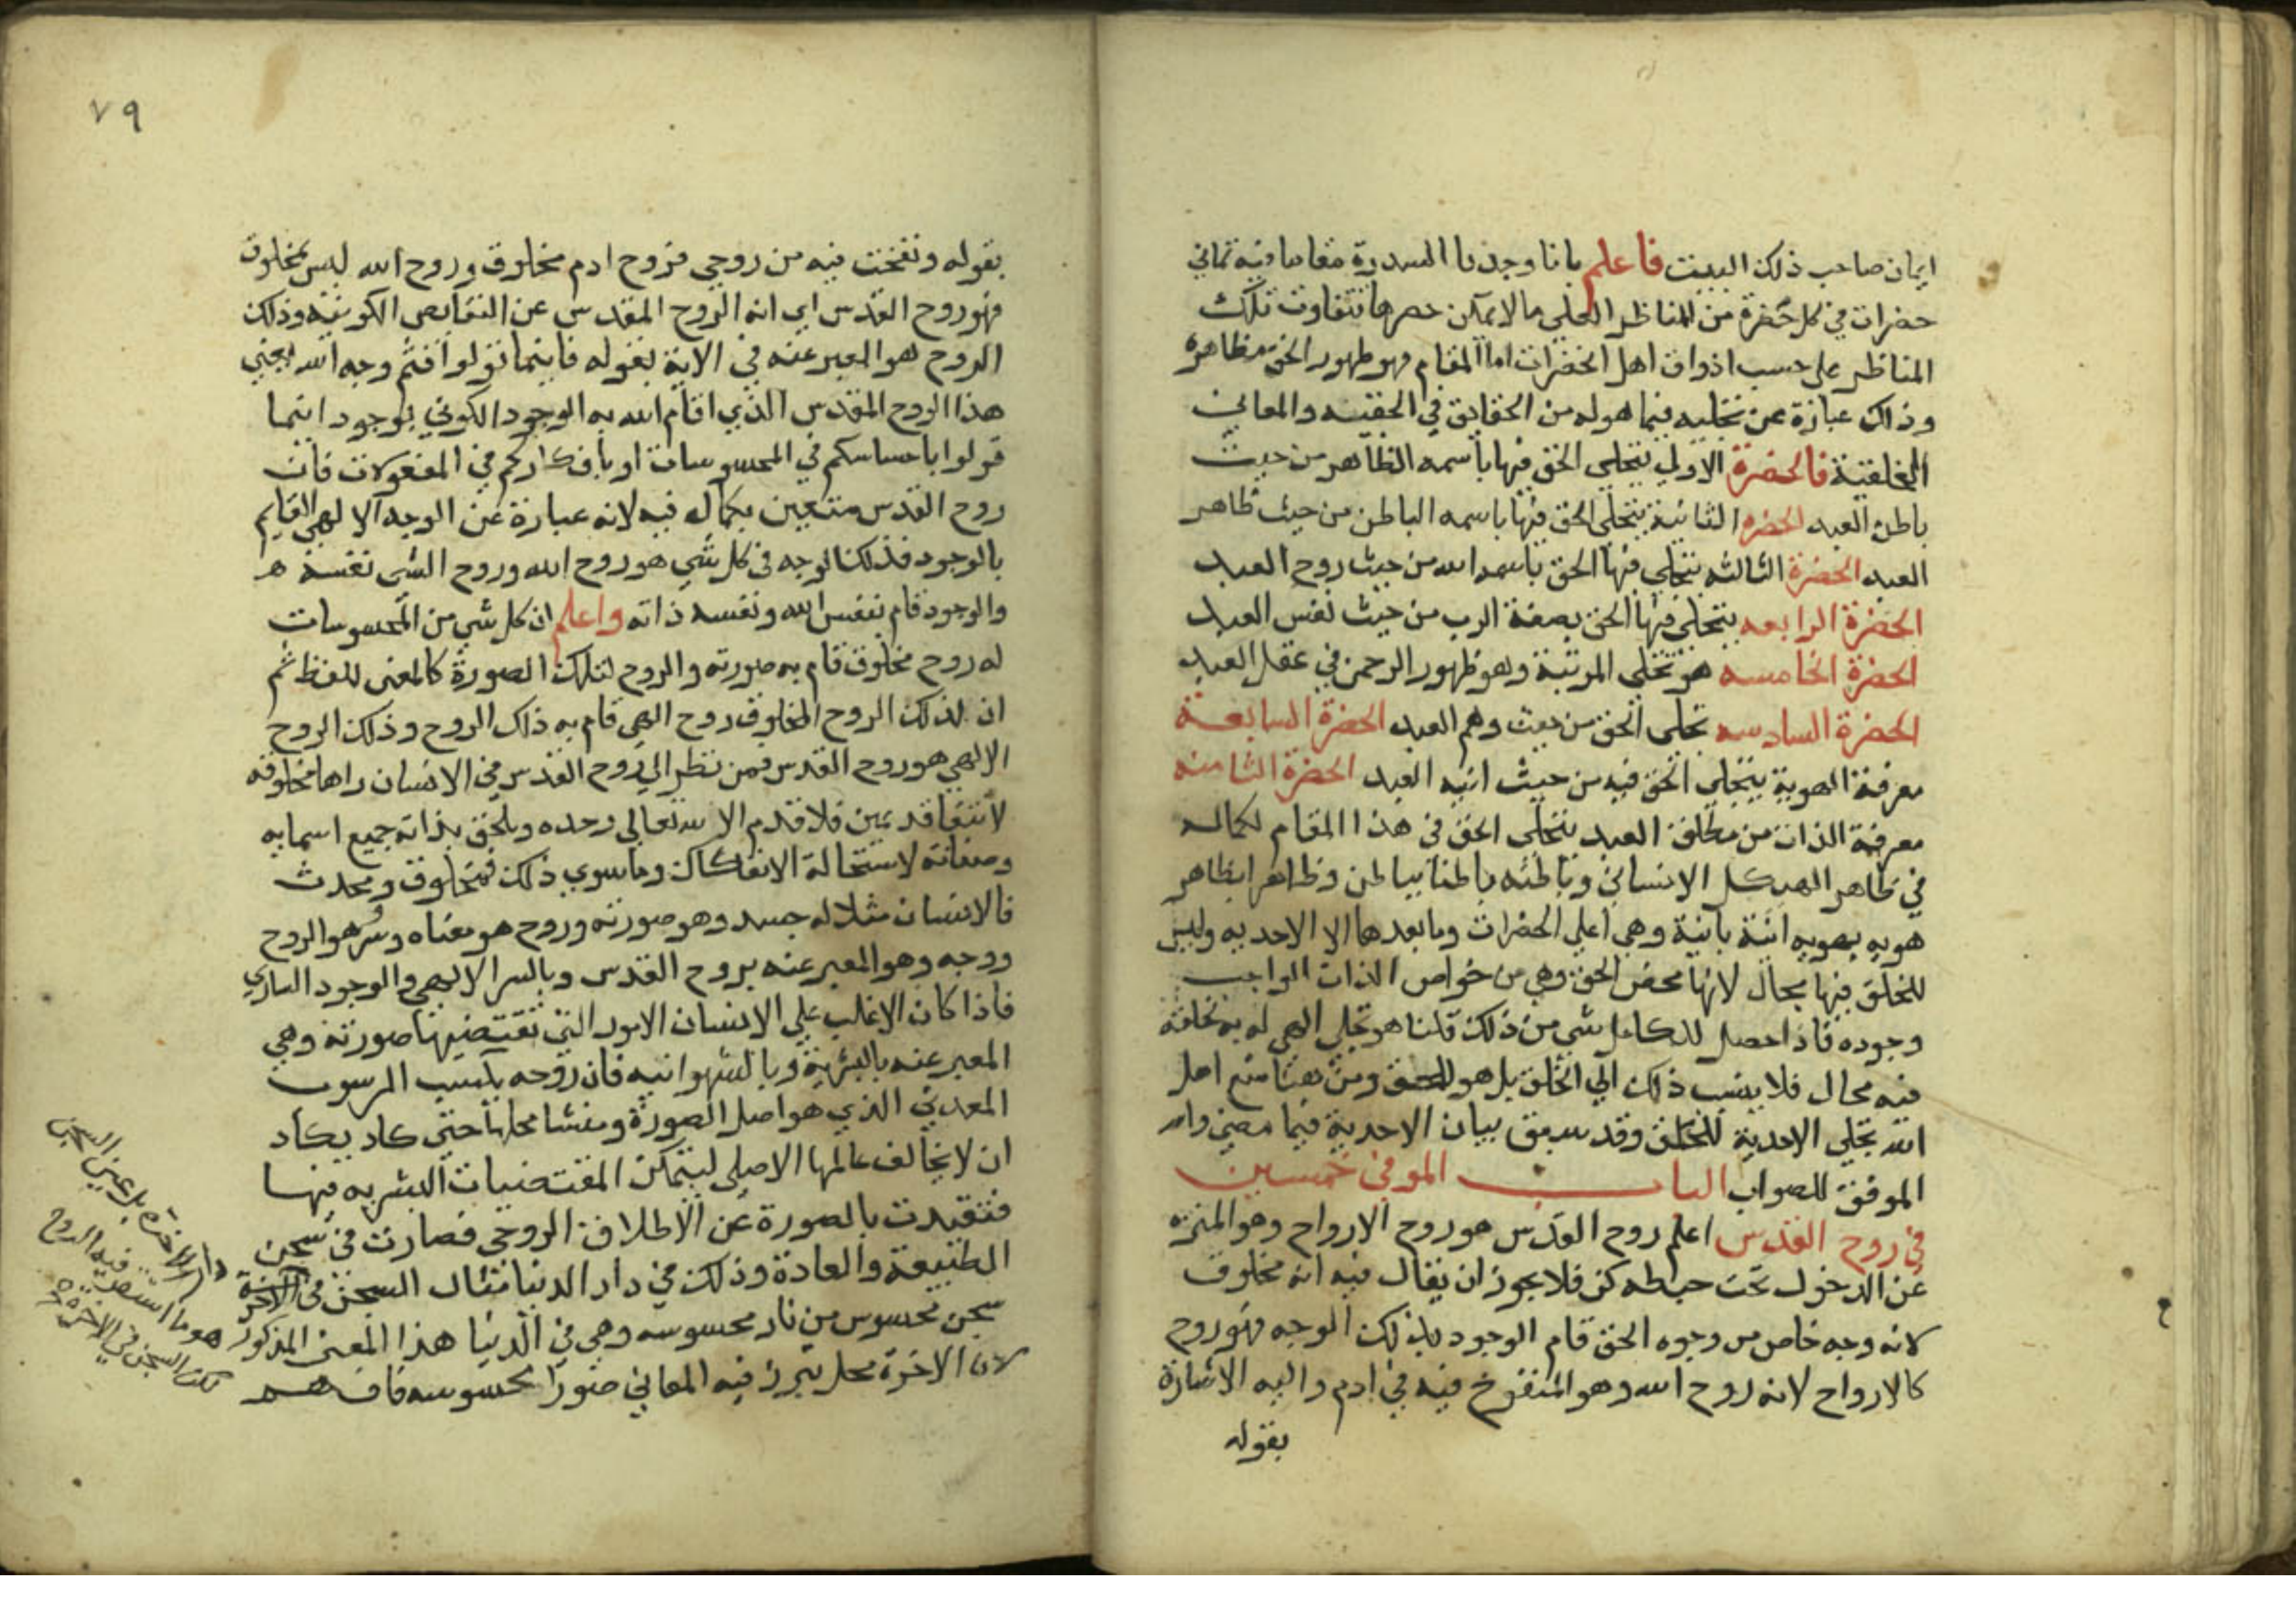 ايمان صاحب ذلك البيت فاعلم بانا وجدنا السدرة مقاما فيه ثماني
حضرات في كل حضرة من المناظر العلي ما لا يمكن حصرها تتفاوت تلك
المناظر على حسب اذواق اهل الحضرات اما المقام فهو ظهور الحق في مظاهره
وذلك عبارة عن تجليه فيما هو له من الحقايق في الحقيه والمعاني
الخلقية فالحضرة الاولي يتجلي الحق فيها باسمه الظاهر من حيث
باطن العبد الحضره الثانية يتجلى الحق فيها باسمه الباطن من حيث ظاهر
العبد الحضرة الثالثه يتجلي فيها الحق باسمه الله من حيث روح العبد
الحضرة الرابعه يتجلى فيها الحق بصفة الرب من حيث نفس العبد
الحضرة الخامسه هو تجلى المرتبة وهو ظهور الرحمن في عقل العبد
الحضرة السادسه تجلى الحق من حيث وهم العبد الحضرة السابعة
معرفة الهوية يتجلي الحق فيه من حيث انيه العبد الحضرة الثامنه
معرفة الذات من مطلق العبد يتجلى الحق في هذا المقام بكماله
في ظاهر الهيكل الانساني وباطنه باطنا بباطن وظاهرا بظاهر
هويه بهويه انية بانية وهي اعلي الحضرات وما بعدها الا الاحديه وليس
للخلق فيها مجال لانها محض الحق وهي من خواص الذات الواجب
وجوده فاذا حصل للكامل شي من ذلك قلنا هو تجلي الهي له به ليس لخلقه
فيه مجال فلا ينسب ذلك الي الخلق بل هو للحق ومن هنا منع اهل
الله تجلي الاحدية للخلق وقد سبق بيان الاحدية فيما مضي والله
الموفق للصواب الباب الموفي خمسين
في روح القدس اعلم روح القدس هو روح الارواح وهو المنزه
عن الدخول تحت حيطه كن فلا يجوز ان يقال فيه انه مخلوق
لانه وجه خاص من وجوه الحق قام الوجود بذلك الوجه فهو روح
كالارواح لانه روح الله وهو المنفوخ فيه في ادم واليه الاشارة
بقوله
٧٩
بقوله ونفخت فيه من روحي فروح ادم مخلوق وروح الله ليس بمخلوق
فهو روح القدس اي انه الروح المقدس عن النقايص الكونيه وذلك
الروح هو المعبر عنه في الاية بقوله فاينما تولوا فثم وجه الله يعني
هذا الروح المقدس الذي اقام الله به الوجود الكوني بوجود اينما
تولوا باحساسكم في المحسوسات او بافكاركم في المعقولات فان
روح القدس متعين بكماله فيه لانه عبارة عن الوجه الالهي القايم
بالوجود فذلك الوجه في كل شي هو روح الله وروح الشي نفسه
والوجود قام بنفس الله ونفسه ذاته واعلم ان كل شي من المحسوسات
له روح مخلوق قام به صورته والروح لتلك الصورة كالمعنى للفظ ثم
ان لذلك الروح المخلوق روح الهي قام به ذلك الروح وذلك الروح
الالهي هو روح القدس فمن نظر الي روح القدس في الانسان راها مخلوقه
لانتفا قديمين فلا قدم الا لله تعالي وحده ويلحق بذاته جميع اسمايه
وصفاته لاستحالة الانفكاك وما سوي ذلك فمخلوق ومحدث
فالانسان مثلا له جسد وهو صورته وروح هو معناه وسر هو الروح
ووجه وهو المعبر عنه بروح القدس وبالسر الالهي والوجود الساري
فاذا كان الاغلب علي الانسان الامور التي تقتضيها صورته وهي
المعبر عنه بالبشرية وبالشهوانيه فان روحه يكتسب الرسوب
المعدني الذي هو اصل الصورة ومنشا محلها حتي كاد يكاد
ان لا يخالف عالمها الاصلي لتمكن المقتضيات البشريه فيها
فتقيدت بالصورة عن الاطلاق الروحي فصارت في سجن
الطبيعة والعادة وذلك في دار الدنيا مثال السجن في الاخرة
سجن محسوس من نار محسوسه وهي في الدنيا هذا المعنى المذكور
لان الاخرة محل تبرز فيه المعاني صورا محسوسه فافهم
دار الاخره بل عين السجن
هو ما استقر فيه الروح
السجن في الاخرة